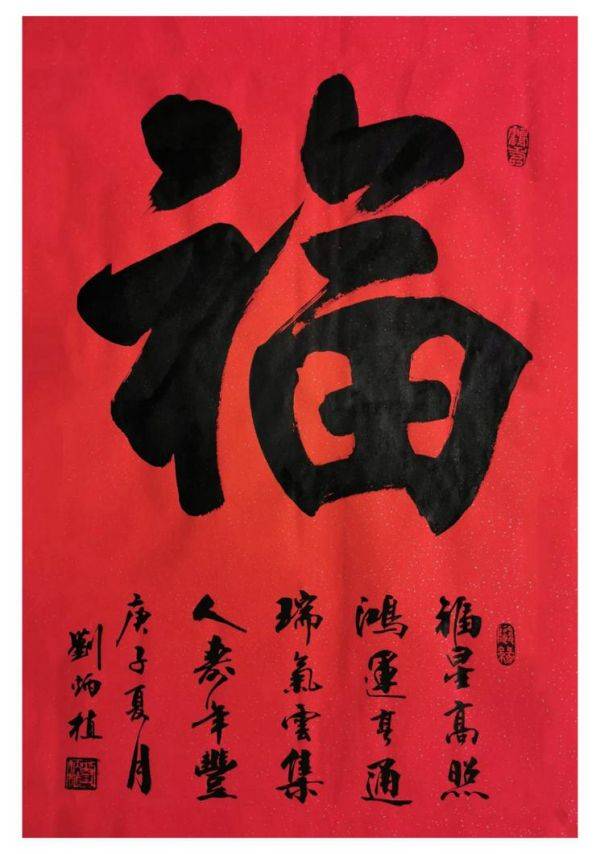 福
福星高照
鸿運亨通
瑞氣雲集
人寿年豐
庚子夏月
劉炳植